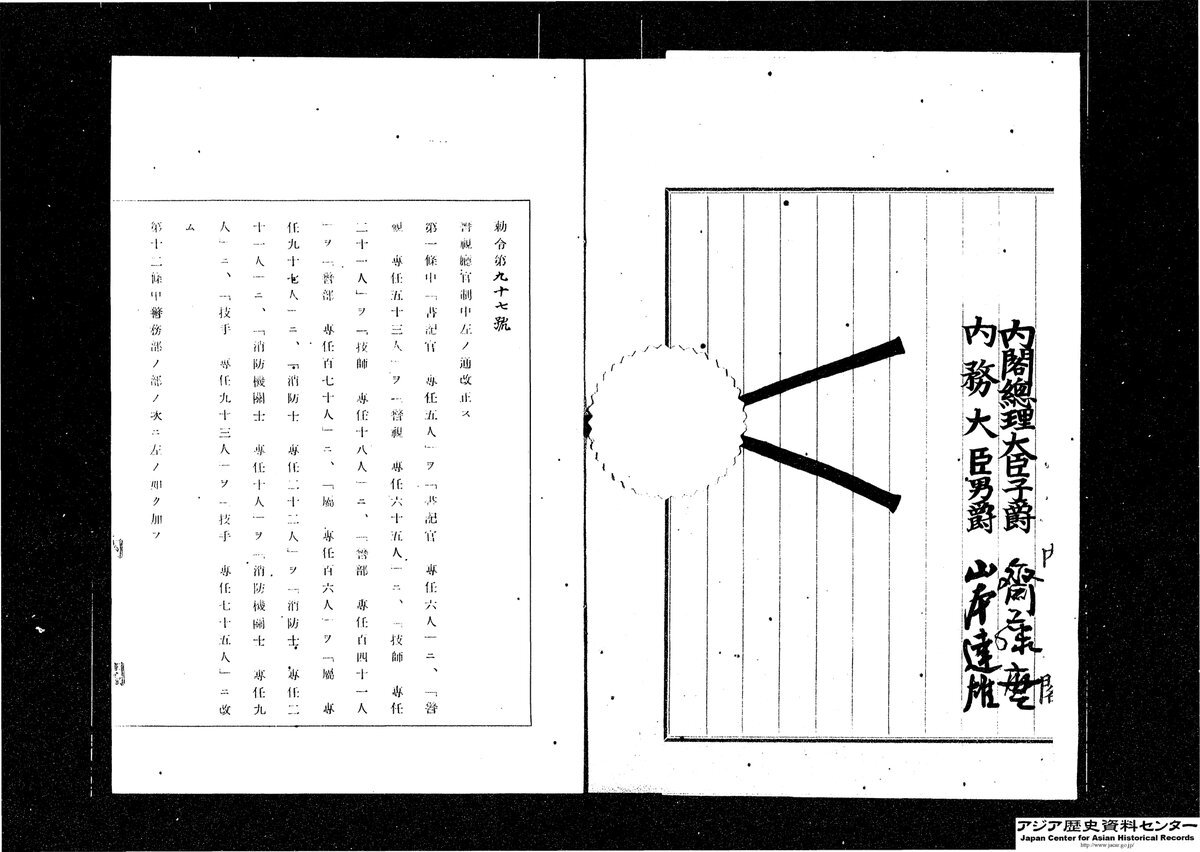 内閣總理大臣子爵 齋藤實
内務大臣男爵 山本達雄
勅令第九十七號
警視廳官制中左ノ通改正ス
第一條中「書記官 專任五人」ヲ「書記官 專任六人」ニ、「警
視 專任五十三人」ヲ「警視 專任六十五人」ニ、「技師 專任
二十一人」ヲ「技師 專任十八人」ニ、「警部 專任百四十一人
」ヲ「警部 專任百七十人」ニ、「屬 專任百六人」ヲ「屬 專
任九十七人」ニ、「消防士 專任二十二人」ヲ「消防士 專任二
十一人」ニ、「消防機關士 專任十人」ヲ「消防機關士 專任九
人」ニ、「技手 專任九十三人」ヲ「技手 專任七十五人」ニ改
ム
第十二條中警務部ノ部ノ次ニ左ノ如ク加フ
アジア歴史資料センター
Japan Center for Asian Historical Records
http://www.jacar.go.jp/